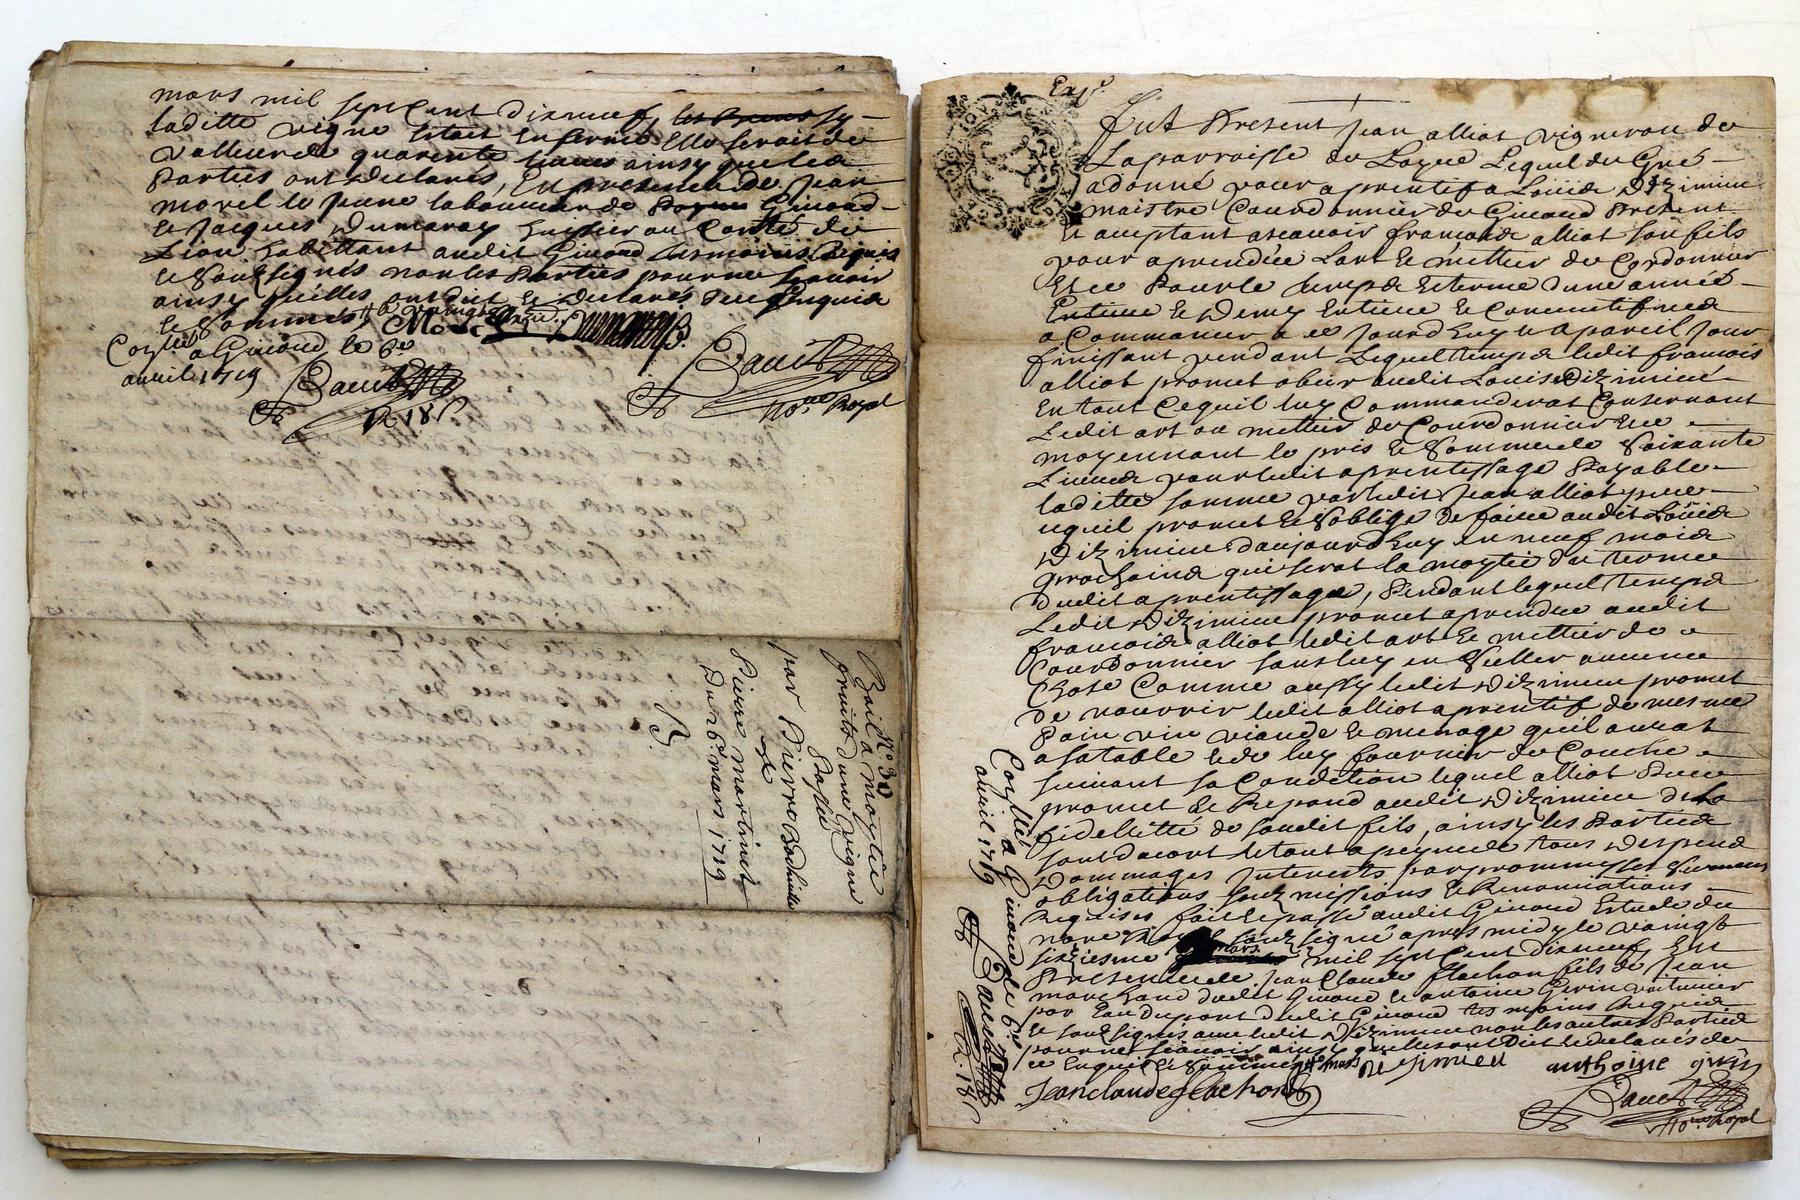 mars mil sept Cent dixneuf, les preneu sy
laditte vigne Estait En ferme Elle serait de
valleur de quarente livres ainsy que les
Parties ont declarés, En presence de Jean
morel le jeune laboureur de Givord
Et Jacques Dumaray huyssier au Comté de
Lion habittant audit Givord tesmoins Requis
Et Soubsignés non les Parties pour ne scavoir
ainsy quelles ont dit Et declarés de ce Enquis
Et Sommés,
Conllé a Givord le 6e
avril 1719
R 18 s
no.re Royal
N° 30
Bail a moytie
fruits d'une vigne
Passée
par Pierre
a
Pierre martinet
Du 26e mars 1719
B.
Exp.e
Fut Present Jean alliot vigneron de
La parroisse de Loyre Lequel de Gré
a donné pour aprentif a Loüis Dizimieu
maistre Courdonnier de Givord Present
Et aceptant ascavoir francois alliot son fils
pour aprendre Lart Et mettier de Cordonnier
Et ce Pour le temps Et terme d'une année
Entiere Et demy Entiere Et Consecutifves
a Commancer a ce Jourd'huy Et a pareil Jour
finissant pendant Lequel temps ledit francois
alliot promet obeir audit Louis Dizimieu
En tout Ce quil luy Commanderat Consernant
Ledit art ou mettier de Courdonnier Et ce
moyennant le pris Et Somme de Soixante
Livres pour ledit aprentissage Payable
laditte somme par ledit Jean alliot pere
uquil promet Et Soblige de faire audit Loüis
Dizimieu d'aujourd'huy en neuf mois
prochains qui serat la moytie du terme
dudit aprentissage, Pendant lequel temps
Ledit Dizimieu promet aprendre audit
francois alliot ledit art Et mettier de
Courdonnier sans luy en Seller aucune
Chose Comme aussy ledit Dizimieu promet
de nourrir ledit alliot aprentif de mesme
Pain vin viande Et menage quil aurat
a sa table Et de luy fournir de Couche
suivant sa Condition lequel alliot Pere
promet Et Repond audit Dizimieu de la
fidellitté de sondit fils, ainsy les Parties
sont d'acort Et tout a peyne de tous Despens
Dommages Interests par prommesses Serments
obligations soubmissions Et Renonciations
Requises fait Et passé audit Givord Estude du
no.re Royal soubsigné apres midy le vaingt
sixiesme mars mil sept Cent dixneuf En
Presence de Jean Claude flachon fils de Jean
marchand dudit Givord Et antoine Gerin voiturier
par Eau du pont dudit Givord tesmoins Requis
Et soubsignés avec ledit Dizimieu non les autres Parties
pour ne scavoir ainsy quelles ont dit Et declarés de
ce Enquis Et Sommés
mars
De sjmieu
anthoine gerin
Jean claude flachon
no.re Royal
Conllé a Givord le 6e
avril 1719
R. 18 s